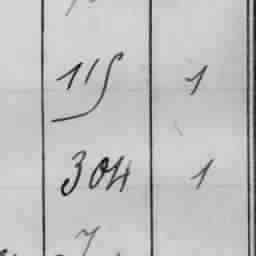 115 1
304 1